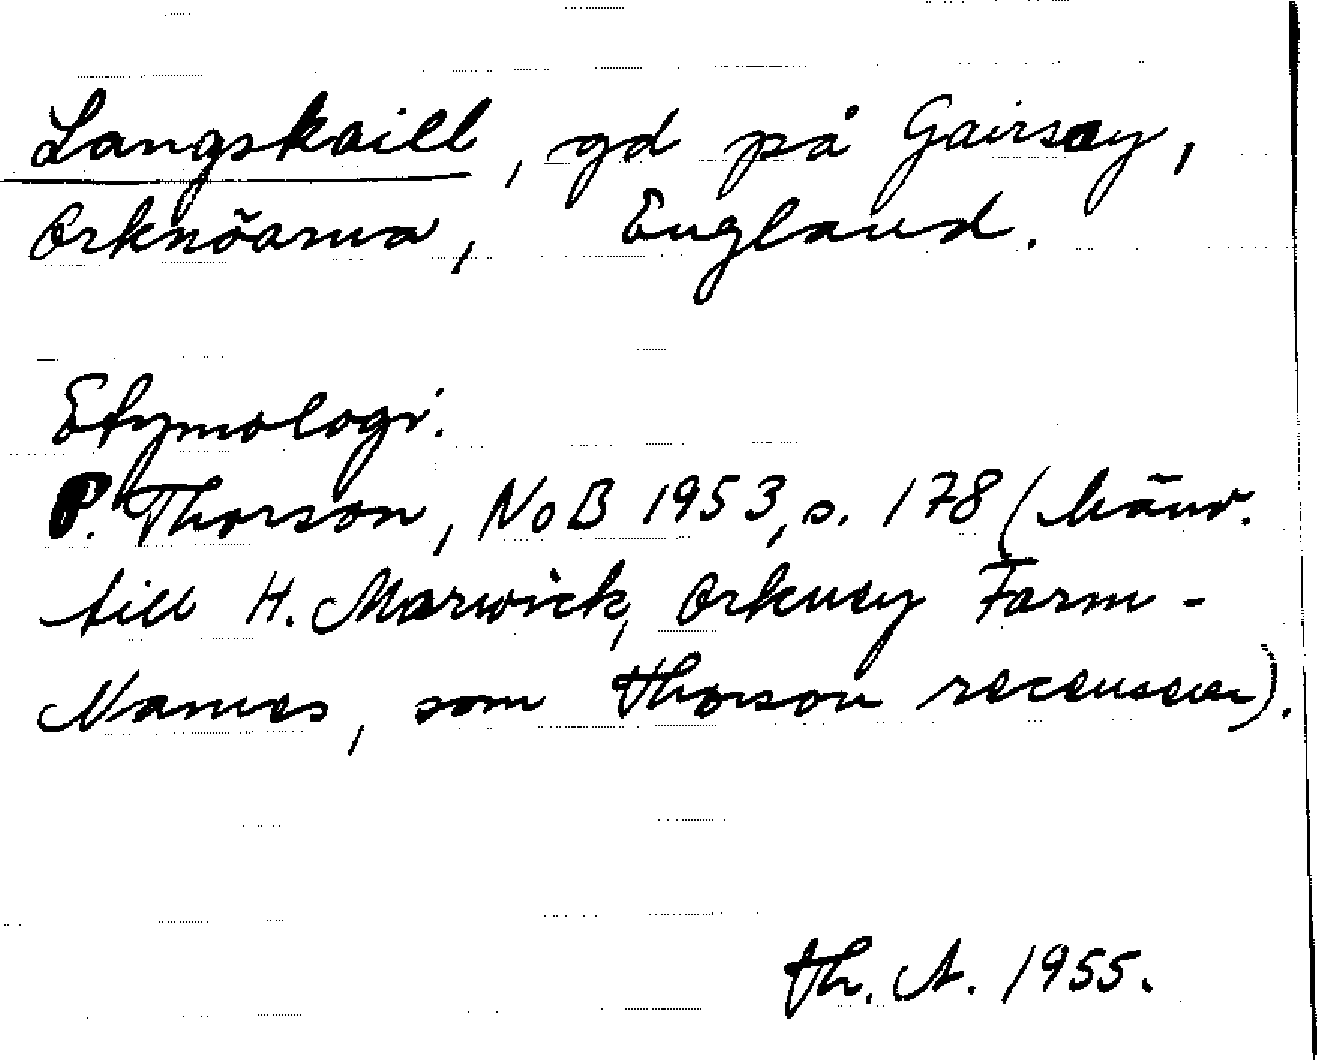 Langskaill, gd på Gairsay,
Orknöarna, England.
Etymologi:
P. Thorson, NoB 1953, s. 178 (hänv.
till H. Marwick, Orkney Farm-
Names, som Thorson recenserar).
Th. A. 1955.